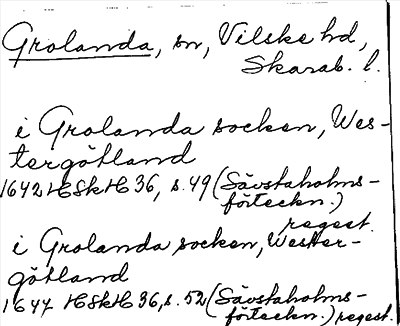 Grolanda, sn, Vilske hd,
Skarab. l.
i Grolanda socken, Wes-
tergötland
1642 HSkH 36, s. 49 (Sävstaholms-
förteckn.)
regest.
i Grolanda socken, Wester-
götland
1644 HSkH 36, s. 52 (Sävstaholms-
förteckn.) regest.